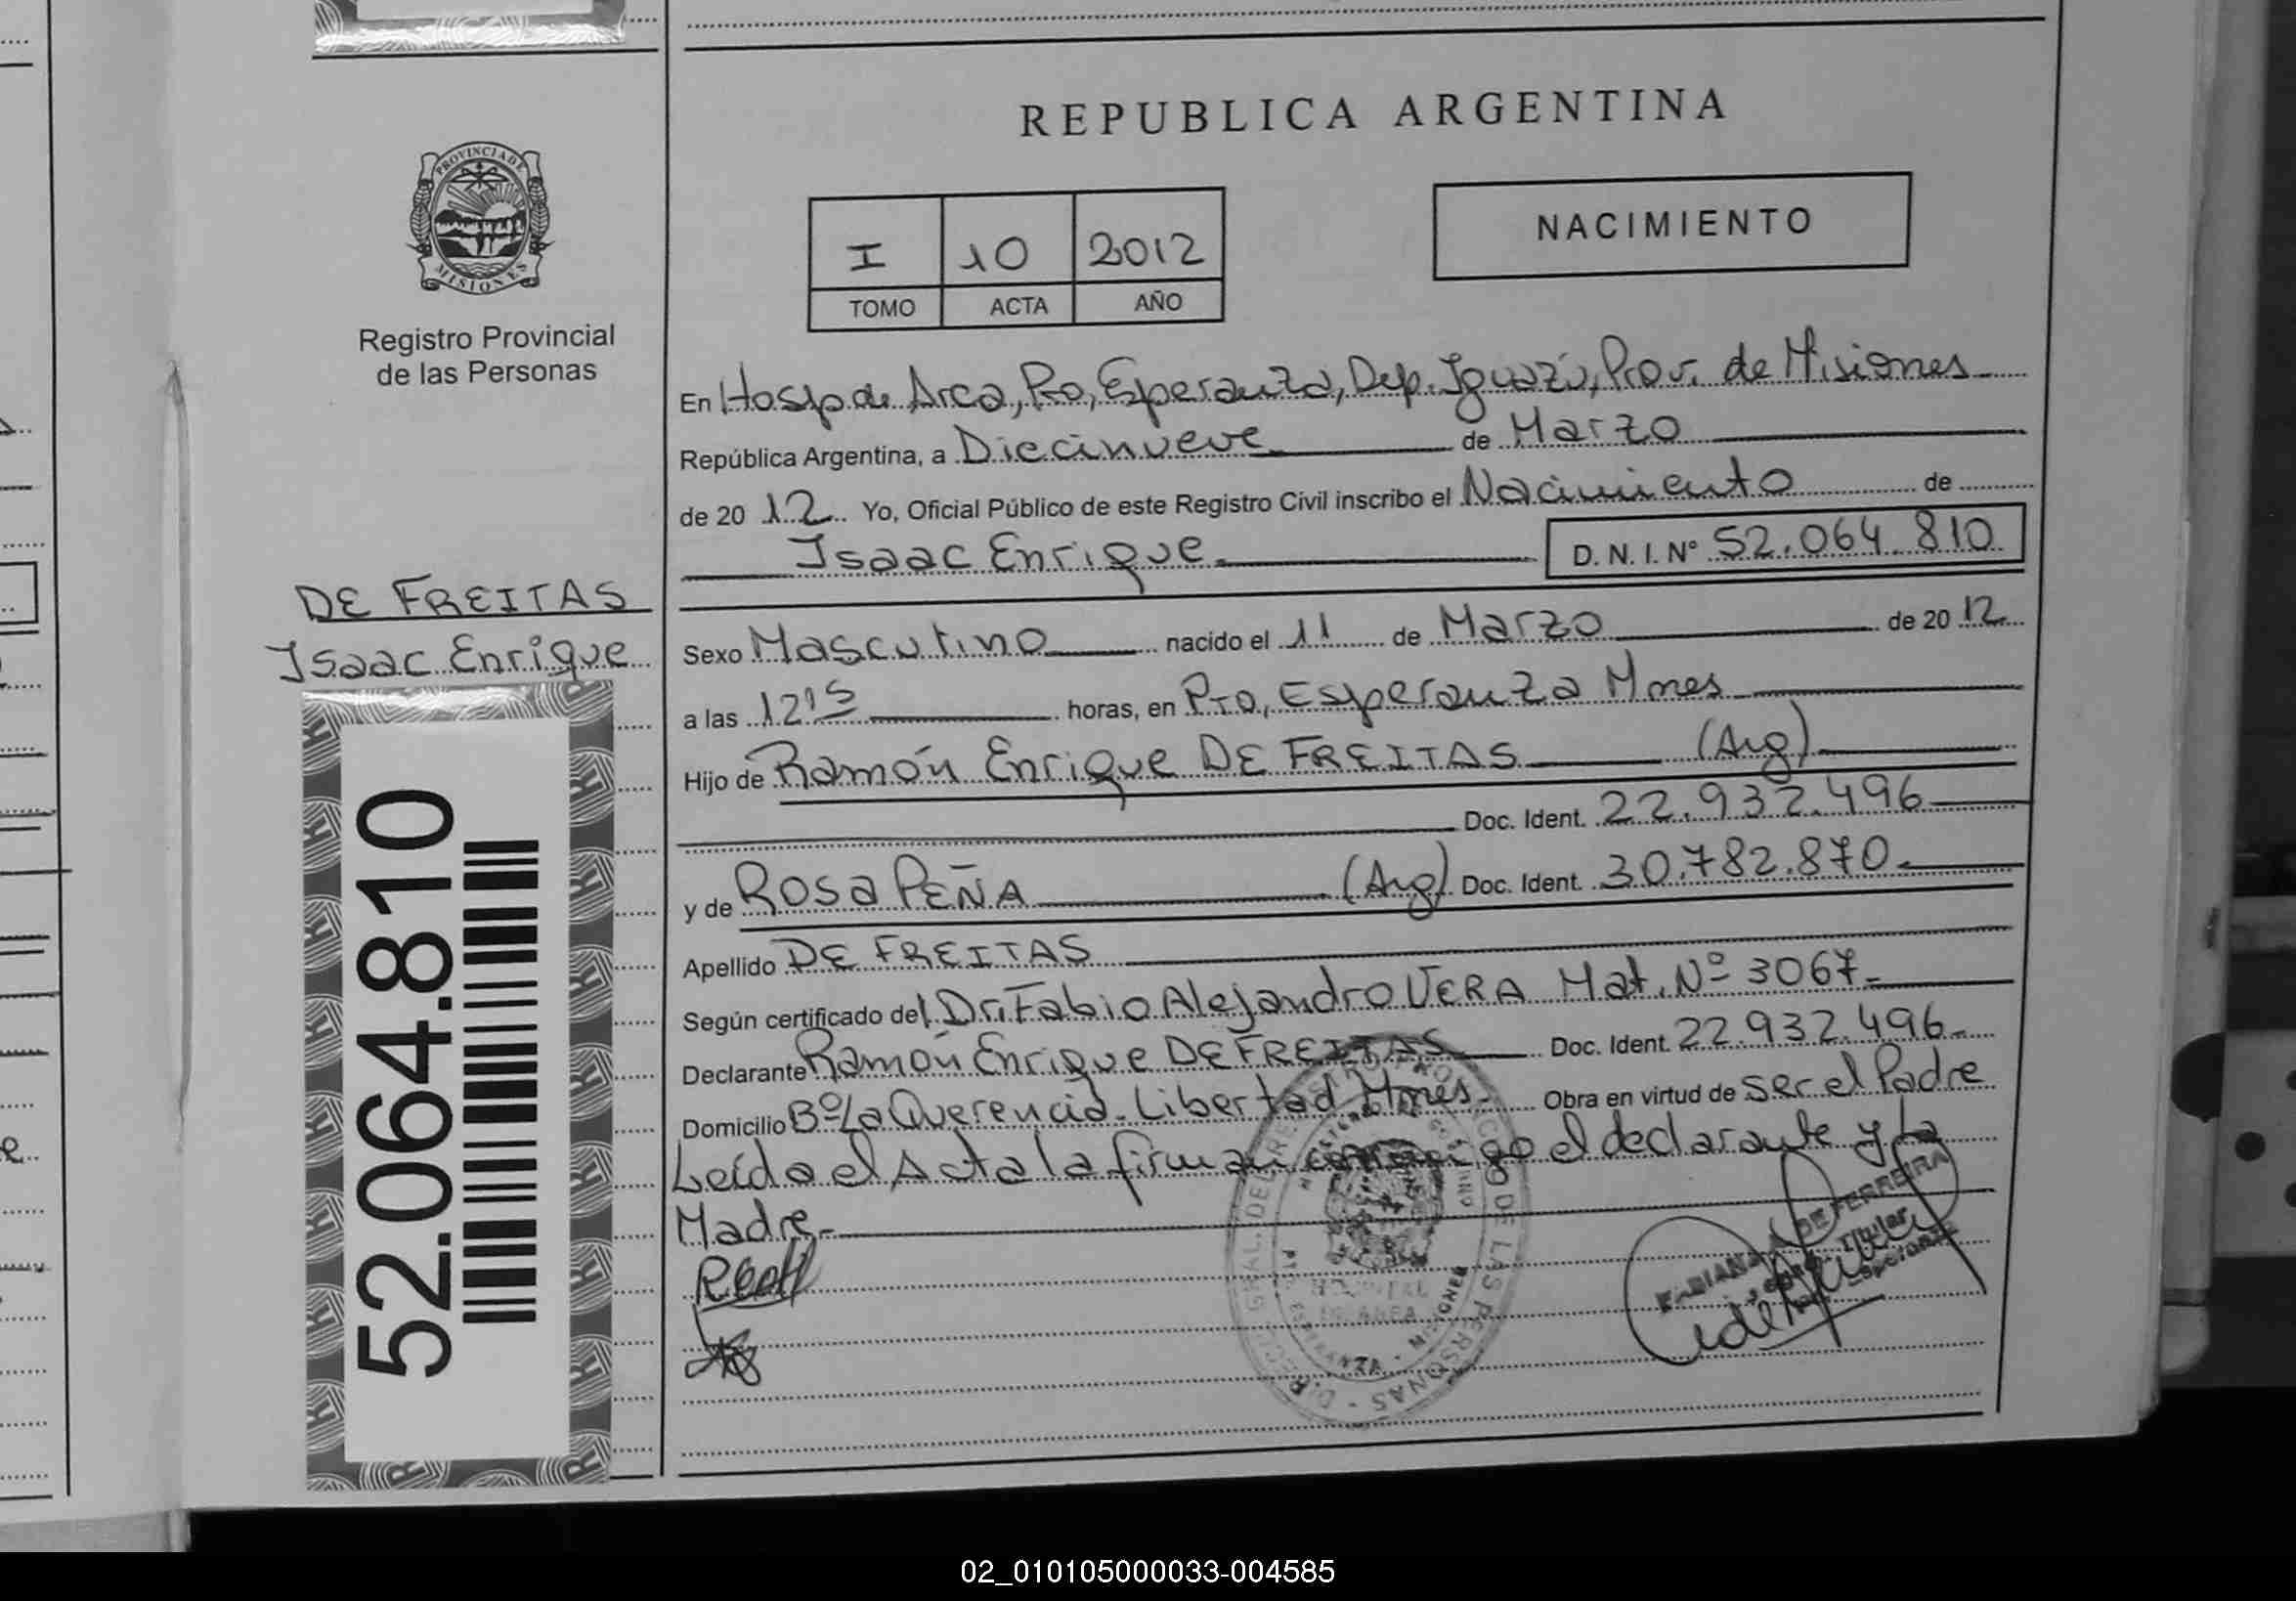 REPUBLICA ARGENTINA
PROVINCIA DE
MISIONES
Registro Provincial
de las Personas
I 10 2012
TOMO ACTA AÑO
NACIMIENTO
En Hosp de Area, Pto, Esperanza, Dep. Iguazú, Prov. de Misiones
República Argentina, a Diecinueve de Marzo
de 20 12 Yo, Oficial Público de este Registro Civil inscribo el Nacimiento de
Isaac Enrique D. N. I. Nº 52.064.810
DE FREITAS
Isaac Enrique
52.064.810
Sexo Masculino nacido el 11 de Marzo de 20 12
a las 12 15 horas, en Pto, Esperanza Mnes
Hijo de Ramón Enrique DE FREITAS (Arg)
Doc. Ident. 22.932.496
y de Rosa PEÑA (Arg) Doc. Ident. 30.782.870.-
Apellido DE FREITAS
Según certificado del Dr. Fabio Alejandro VERA Mat. Nº 3067.-
Declarante Ramón Enrique DE FREITAS Doc. Ident. 22.932.496.-
Domicilio Bº La Querencia. Libertad Mnes. Obra en virtud de ser el Padre
Leída el Acta la firman conmigo el declarante y La
Madre.-
DE LAS PERSONAS
HOSPITAL
DE AREA
ESPERANZA - MISIONES
DE FERREIRA
Titular
02_010105000033-004585